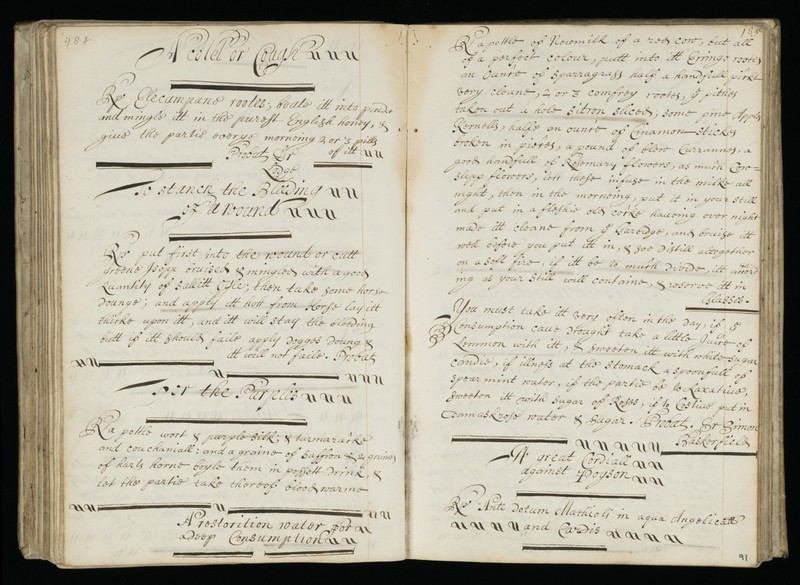 488
A Colld or Cough
Rx Elecampane rootes, beate itt into pouder
and mingle itt in the purest English honey, &
give the partie everye morneing 2 or 3 pills
of itt
Probat Dr
Lodge
To stanch the Bleeding
of A wound
Rx put first into the wound or cutt
greene Isopp bruised & mingled with a good
Quantity of Sallitt Oyle; then take some horse
Dounge, and apply itt hott from Horse lay itt
thicke upon itt, and itt will stay the bleeding
butt if itt should faile apply Dogges Doung &
itt will not faile. Probat
For the Purples
Rx a pottle wort & purple silk; & turmararke
and couchaniall: and a graine of Saffron & graines
of harts horne boyle them in possett Drink, &
let the partie take thereof blood warme
A restorition water for a
Deep Consumption
Rx a pottle of Newmilk of a red cow, butt all
of a perfect colour, putt into itt Eringo rootes
an ounce of Sparragrass half a handfull pickt
very cleane, 2 or 3 comfrey rootes, ye pithes
taken out a hole Sitron sliced, some pine Apple
Kernells, halfe an ounce of Cinamon-stickes
broken in pieces, a pound of blew Currannes, a
good handfull of Rosemary flowers, as much Cow=
slipp flowers, lett these infuse in the milke all
night, then in the morneing, put it in your still
and put in a fleshie old cocke haveing over night
made itt cleane from ye Garbidge, and bruise itt
well before you put itt in, & soe Distill altogether
on a soft fire, if itt be to much Divide, itt accord
ing as your Still will containe, & reserve itt in
Glasses.
You must take itt very often in the Day, if ye
Consumption cause Drought take a little Juice of
Lemmon with itt, & sweeten itt with white Sugar
candie, if illness att the Stomack a spoonfull of
Spear mint water, if the partie be to Laxative,
Sweeten itt with Sugar of Roses, if to Costive put in
Damaskrose water & Sugar. Probat. Dr Simon
Baskerfield
A great Cordiall
against Poyson
Rx Anti Dotum Mathioli in aqua Angelicae
and Cardis
91